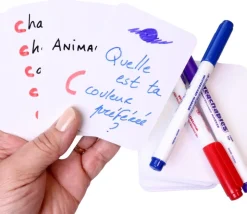 Cha
Ch
C
C
ANIMA
C
Quelle
est ta
couleur
préférée
?